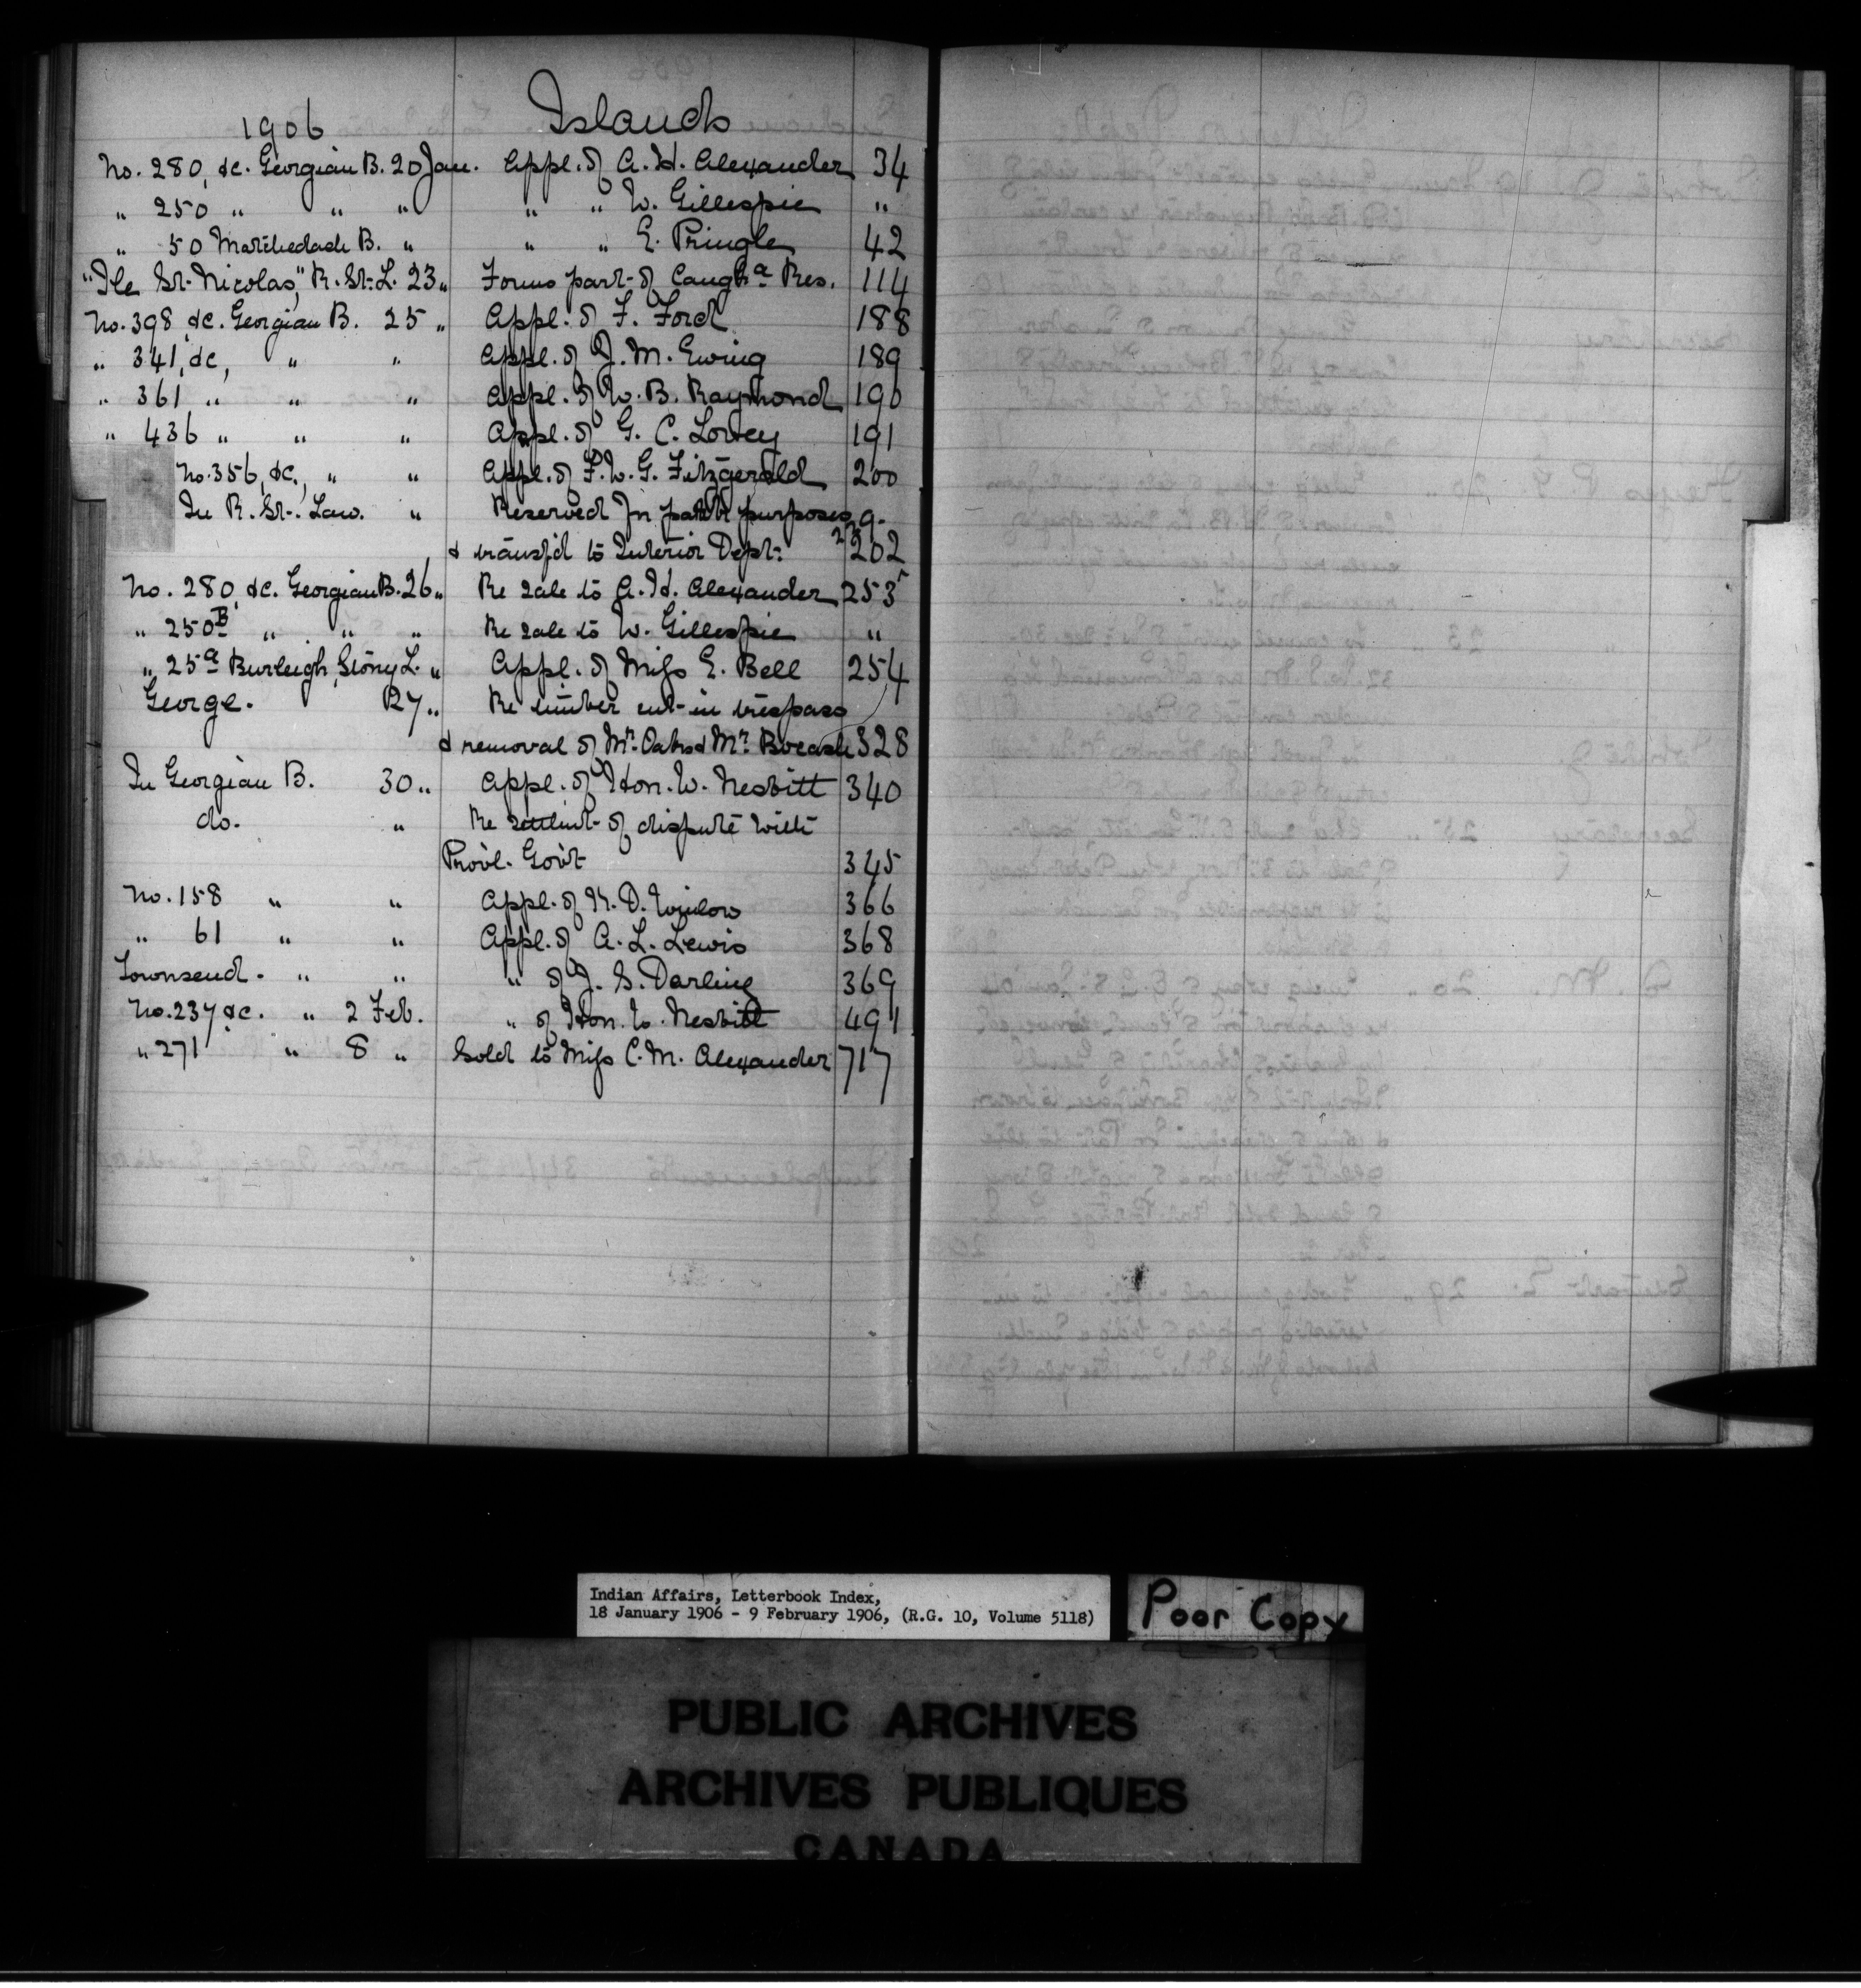 1906 Islands
No. 280, &c. Georgian B. 20 Jan. Appl. of A. H. Alexander 34
" 250 " " " " " W. Gillespie "
" 50 Matchedash B. " " " E. Pringle 42
"Ile St. Nicolas," R. St. L. 23 " Forms part of Caugha Res. 114
No. 398 &c. Georgian B. 25 " Appl. of F. Ford 188
" 341, &c, " " Appl. of J. M. Ewing 189
" 361 " " " Appl. of W. B. Raymond 190
" 436 " " " Appl. of G. C. Lowey 191
No. 356, &c., " " Appl. of F. W. G. Fitzgerald 200
In R. St. Law. " Reserved for park purposes
& transf'd to Interior Dept. 202
No. 280, &c. Georgian B. 26 " Re sale to A. H. Alexander 253
" 250B " " " Re sale to W. Gillespie "
" 25a Burleigh, Stony L. " Appl. of Miss E. Bell 254
George. 27 " Re timber cut in trespass
& removal of Mr. Oaks & Mr. 328
In Georgian B. 30 " Appl. of Hon. W. Nesbitt 340
do. " Re settlmt of dispute with
Provl. Govt 345
No. 158 " " Appl. of K. D. 366
" 61 " " Appl. of A. L. Lewis 368
Townsend. " " " of J. S. Darling 369
No. 237 &c. " 2 Feb. " of Hon. W. Nesbitt 491
" 271 " 8 " Sold to Miss C. M. Alexander 717
Indian Affairs, Letterbook Index,
18 January 1906 - 9 February 1906, (R.G. 10, Volume 5118)
Poor Copy
PUBLIC ARCHIVES
ARCHIVES PUBLIQUES
CANADA